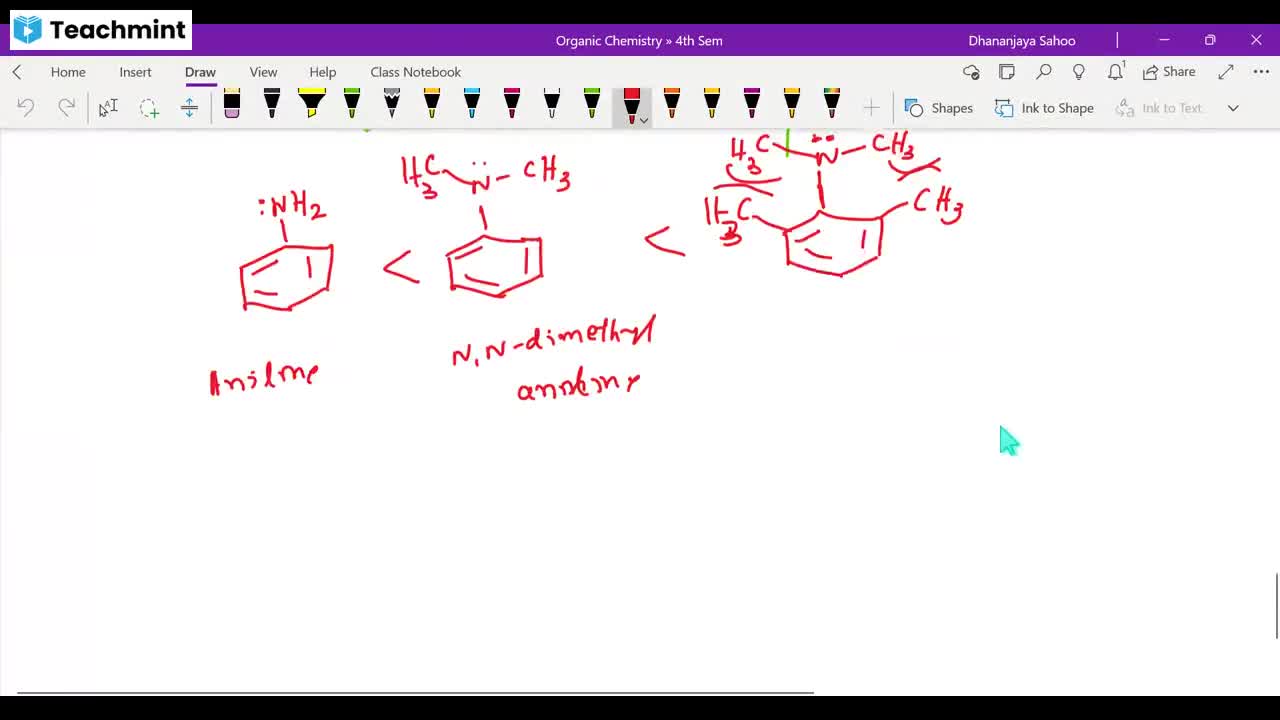 Teachmint
Organic Chemistry » 4th Sem
Dhananjaya Sahoo
Home Insert Draw View Help Class Notebook
1
Share
Shapes
Ink to Shape
Ink to Text
:NH2
H3C N CH3
H3C N CH3
H3C CH3
< <
N,N-dimethyl